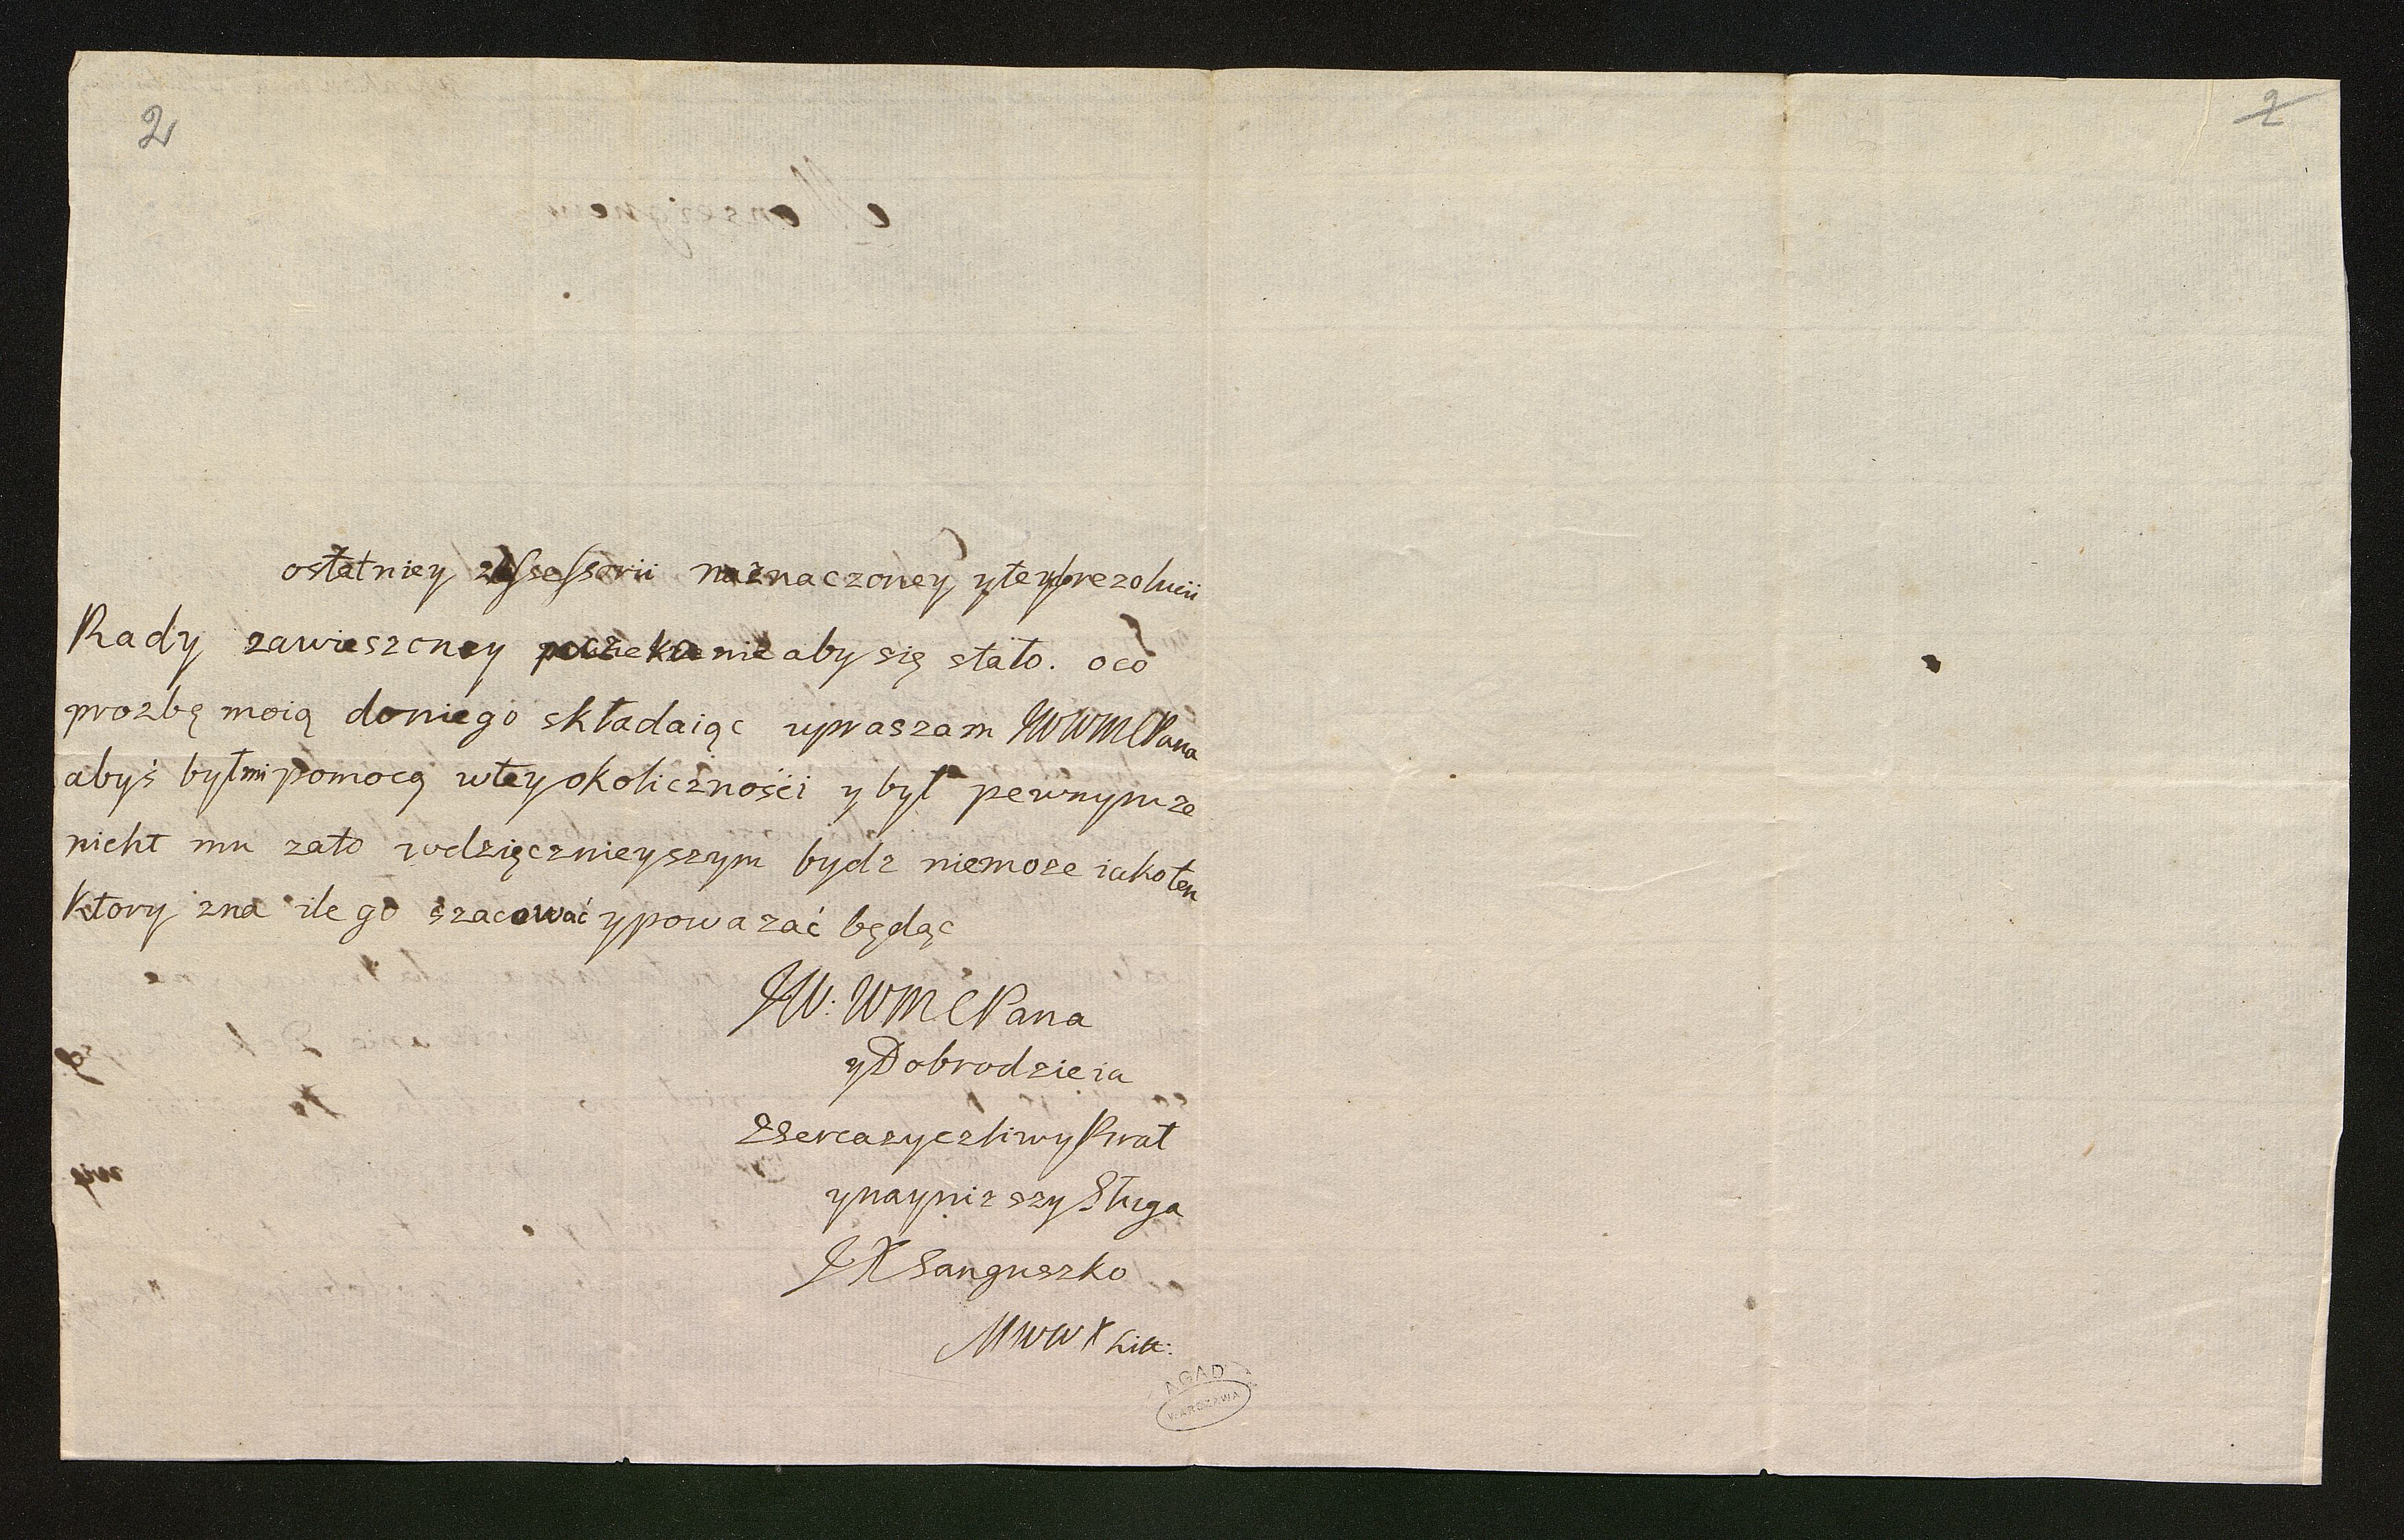 2
2
ostatniey zassessorii naznaczoney ytey rezolucii
Rady zawieszoney poczekanie aby się stało. oco
prozbę moią doniego składaiąc upraszam JWWMCPana
abyś był mi pomocą wtey okoliczności y był pewnym ze
nicht mu zato wdzięcznieyszym bydz niemoze iako ten
Ktory zna ile go szacować ypowazać będąc
JW: WMCPana
yDobrodzieia
Zserca zyczliwy Brat
ynaynizszy Sługa
JX Sanguszko
MWWX Litt:
AGAD
WARSZAWA